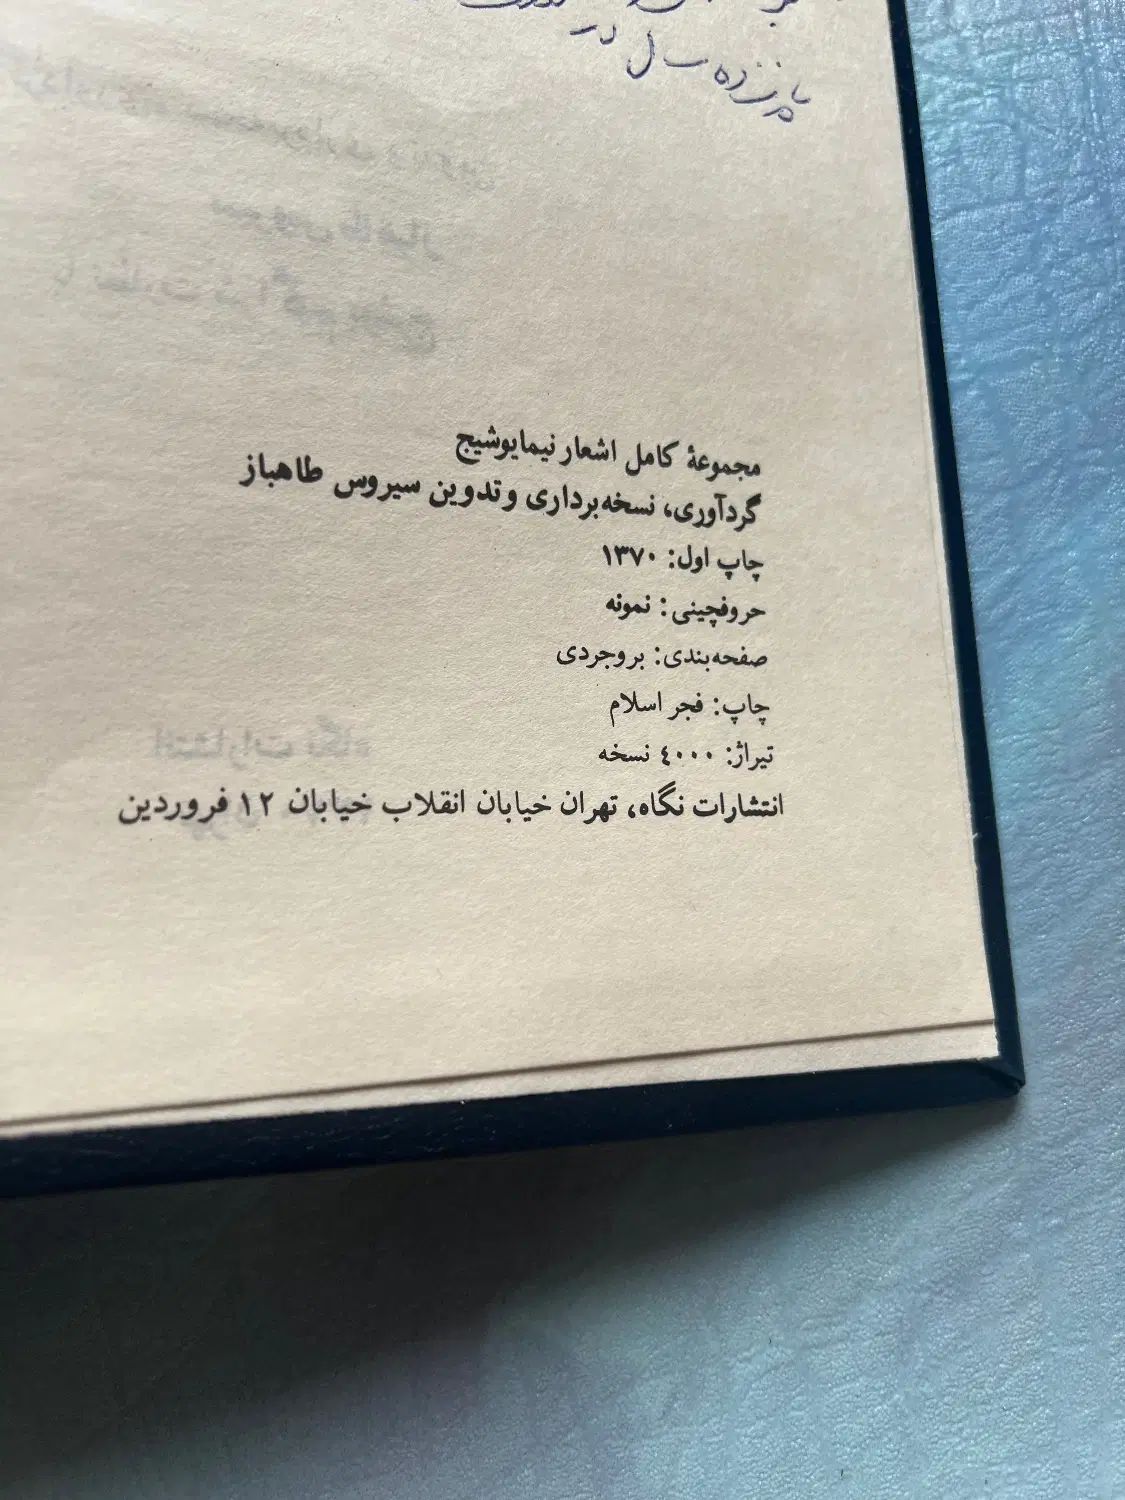 پانزده سال در
مجموعهٔ کامل اشعار نیمایوشیج
گردآوری، نسخه‌برداری و تدوین سیروس طاهباز
چاپ اول: ۱۳۷۰
حروفچینی: نمونه
صفحه‌بندی: بروجردی
چاپ: فجر اسلام
تیراژ: ۴۰۰۰ نسخه
انتشارات نگاه، تهران خیابان انقلاب خیابان ۱۲ فروردین